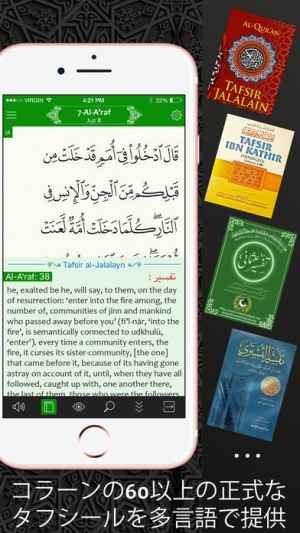 VIRGIN
4:21 PM
22%
7-Al-A'raf
Juz 8
قَالَ ٱدْخُلُوا۟ فِىٓ أُمَمٍ قَدْ خَلَتْ مِن
قَبْلِكُم مِّنَ ٱلْجِنِّ وَٱلْإِنسِ فِى
ٱلنَّارِ ۖ كُلَّمَا دَخَلَتْ أُمَّةٌ لَّعَنَتْ
Tafsir al-Jalalayn
Al-A'raf: 38
تفسير :
he, exalted be he, will say, to them, on the day
of resurrection: 'enter into the fire among, the
number, of communities of jinn and mankind
who passed away before you' (fī'l-nār, 'into the
fire', is semantically connected to udkhulū,
'enter'). every time a community enters, the
fire, it curses its sister-community, [the one]
that came before it, because of its having gone
astray on account of it, until, when they have all
followed, caught up with, one another there,
the last of them, those who were the followers
AL-QUR'AN
TAFSIR
JALALAIN
TAFSIR
IBN KATHIR
تفسير عثماني
コラーンの60以上の正式な
タフシールを多言語で提供